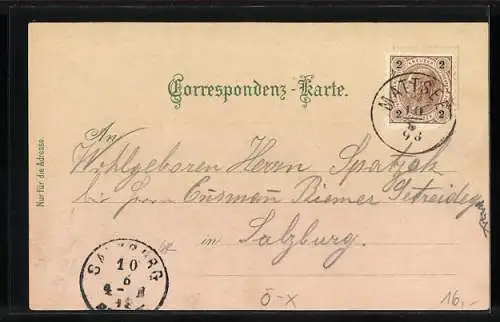 Correspondenz-Karte.
2 KREUZER 2
2 2
MATTSEE
10
6
98
An
Wohlgeboren Herrn Spatzek
bei Herrn Riemer Getreide
in Salzburg
Nur für die Adresse.
SALZBURG
10
6
Ö-X
16,-